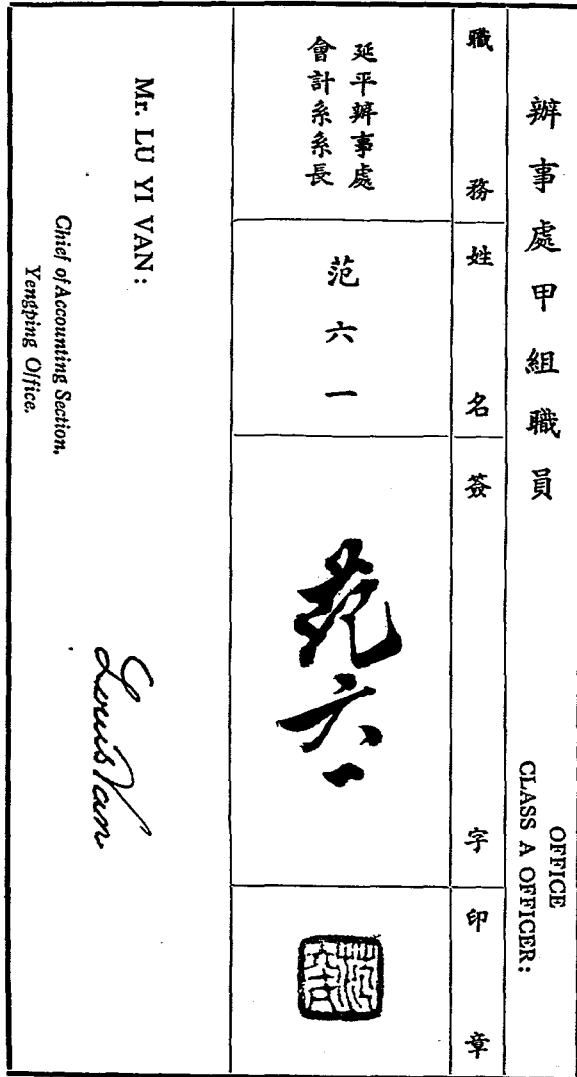 辦事處甲組職員
OFFICE
CLASS A OFFICER:
職務
姓名
簽字
印章
延平辦事處
會計系系長
范六一
范六一
Mr. LU YI VAN:
Chief of Accounting Section,
Yengping Office.
Louis Van